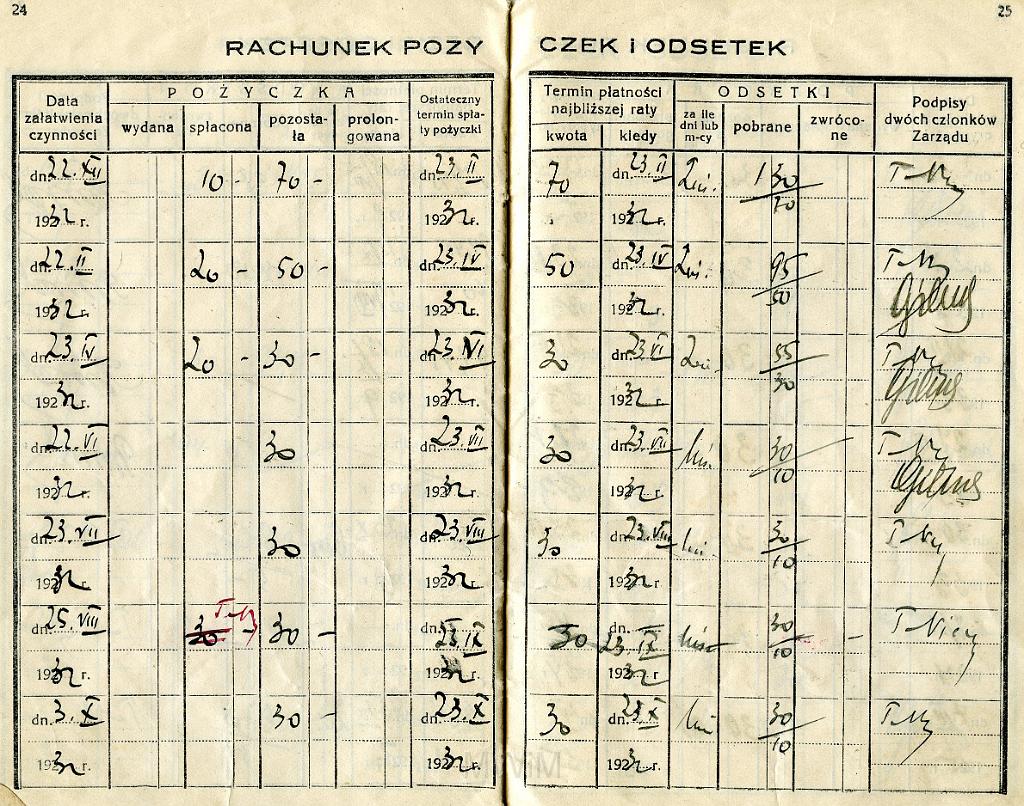 24
25
RACHUNEK POŻY CZEK i ODSETEK
Data załatwienia czynności
POŻYCZKA
wydana
spłacona
pozostała
prolongowana
Ostateczny termin spłaty pożyczki
Termin płatności najbliższej raty
kwota
kiedy
ODSETKI
za ile dni lub m-cy
pobrane
zwrócone
Podpisy dwóch członków Zarządu
dn. 22.XII 10 - 70 - dn. 23.II 70 dn. 23.II 1 30/70
1932 r. 1932 r. 1932 r.
dn. 22.II 20 - 50 - dn. 23.IV 50 dn. 23.IV 95/50
1932 r. 1932 r. 1932 r.
dn. 23.IV 20 - 30 - dn. 23.VI 30 dn. 23.VI 55/30
1932 r. 1932 r. 1932 r.
dn. 22.VI 30 dn. 23.VII 30 dn. 23.VII 30/10
1932 r. 1932 r. 1932 r.
dn. 23.VII 30 dn. 23.VIII 30 dn. 23.VIII 30/10
1932 r. 1932 r. 1932 r.
dn. 25.VIII 30 - 30 - dn. 23.IX 30 dn. 23.IX 30/10 -
1932 r. 1932 r. 1932 r.
dn. 3.X 30 - dn. 23.X 30 dn. 23.X 30/10
1932 r. 1932 r. 1932 r.